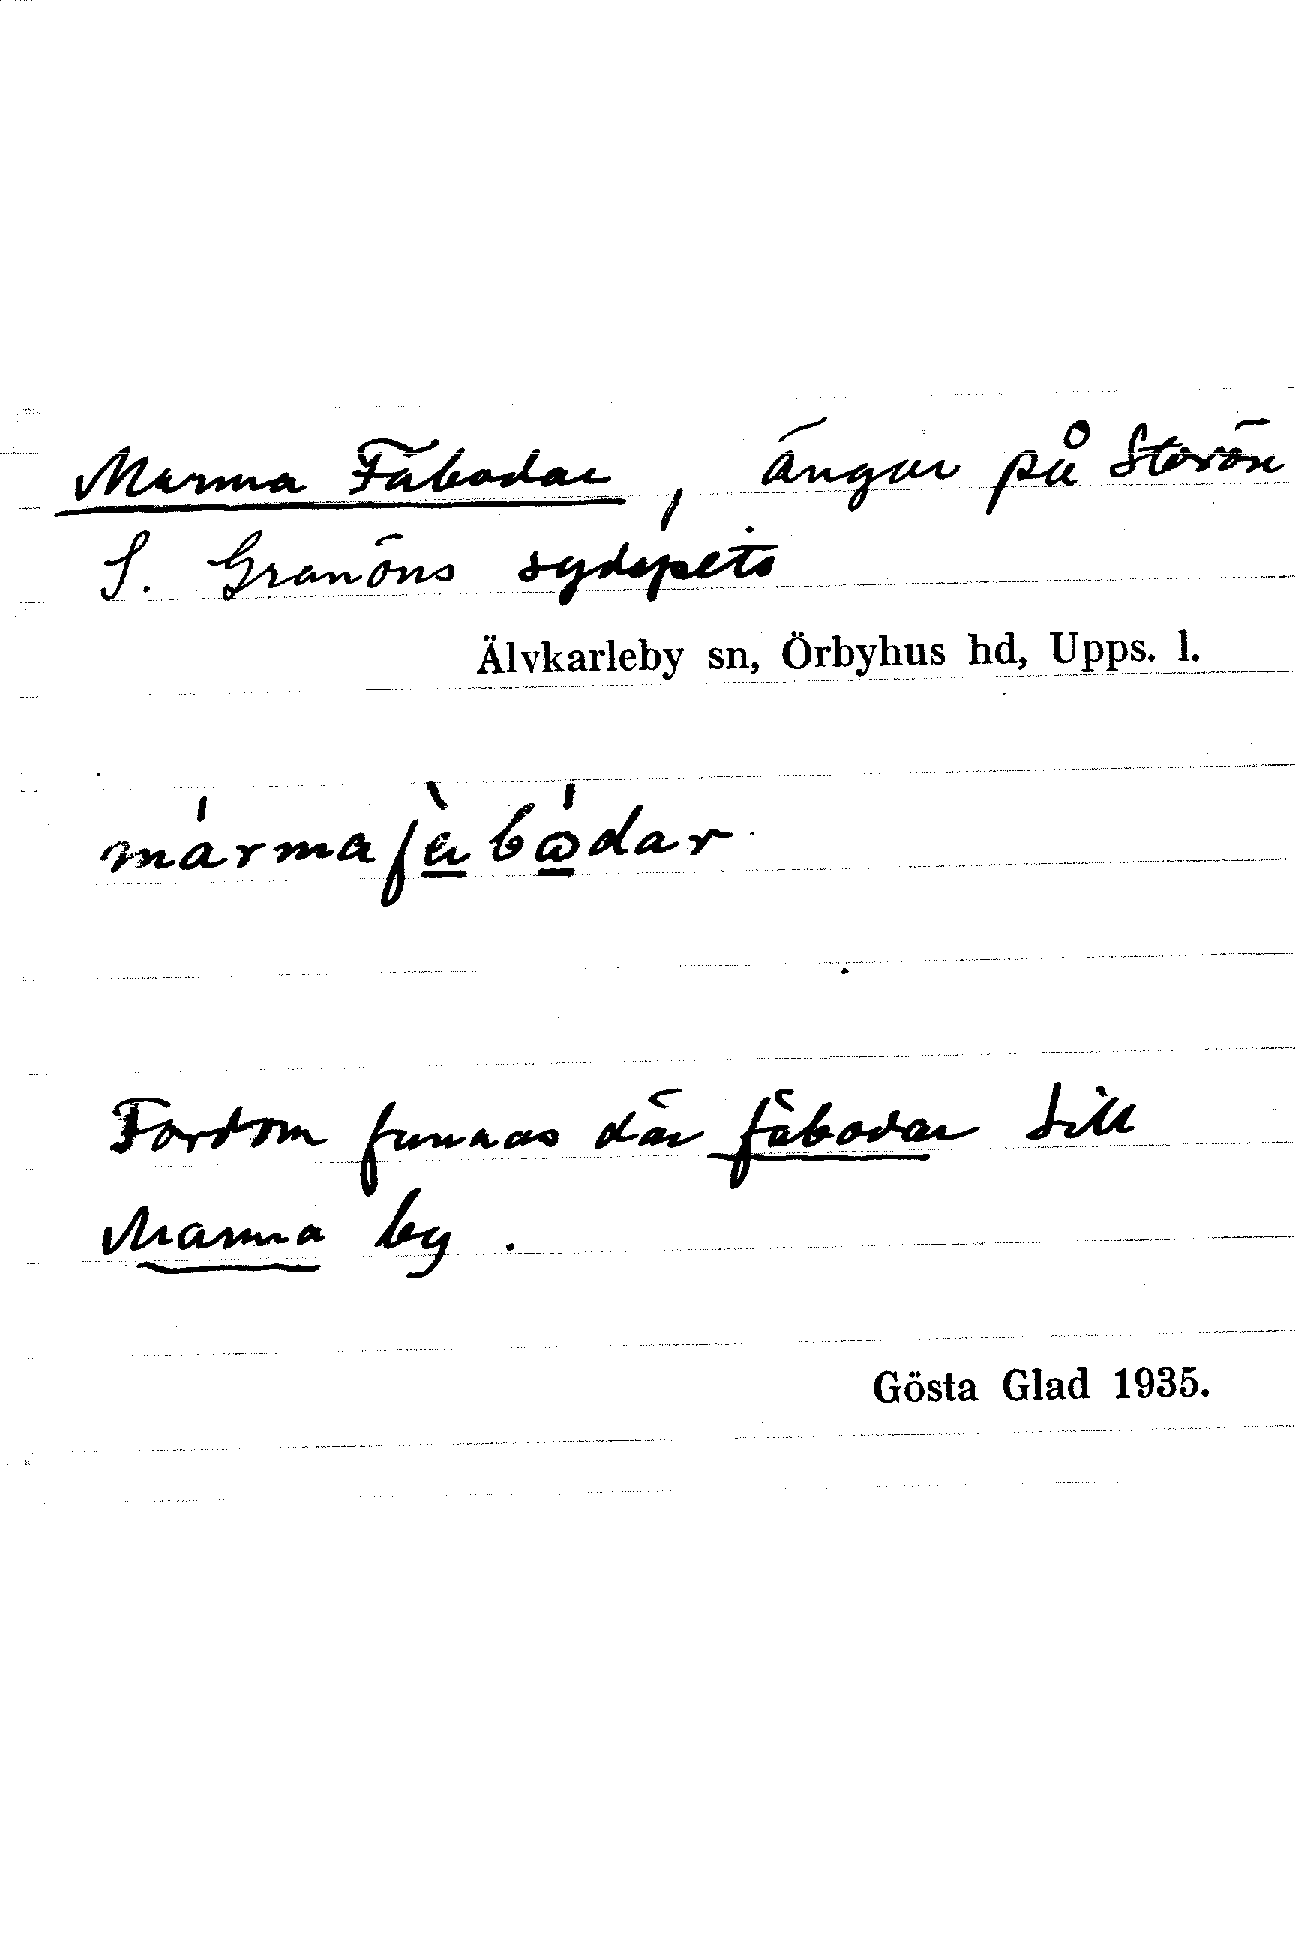 Marma Fäbodar, ängar på Storön
S. Granöns sydspets
Älvkarleby sn, Örbyhus hd, Upps. l.
Fordom funnos där fäbodar till
Marma by.
Gösta Glad 1935.